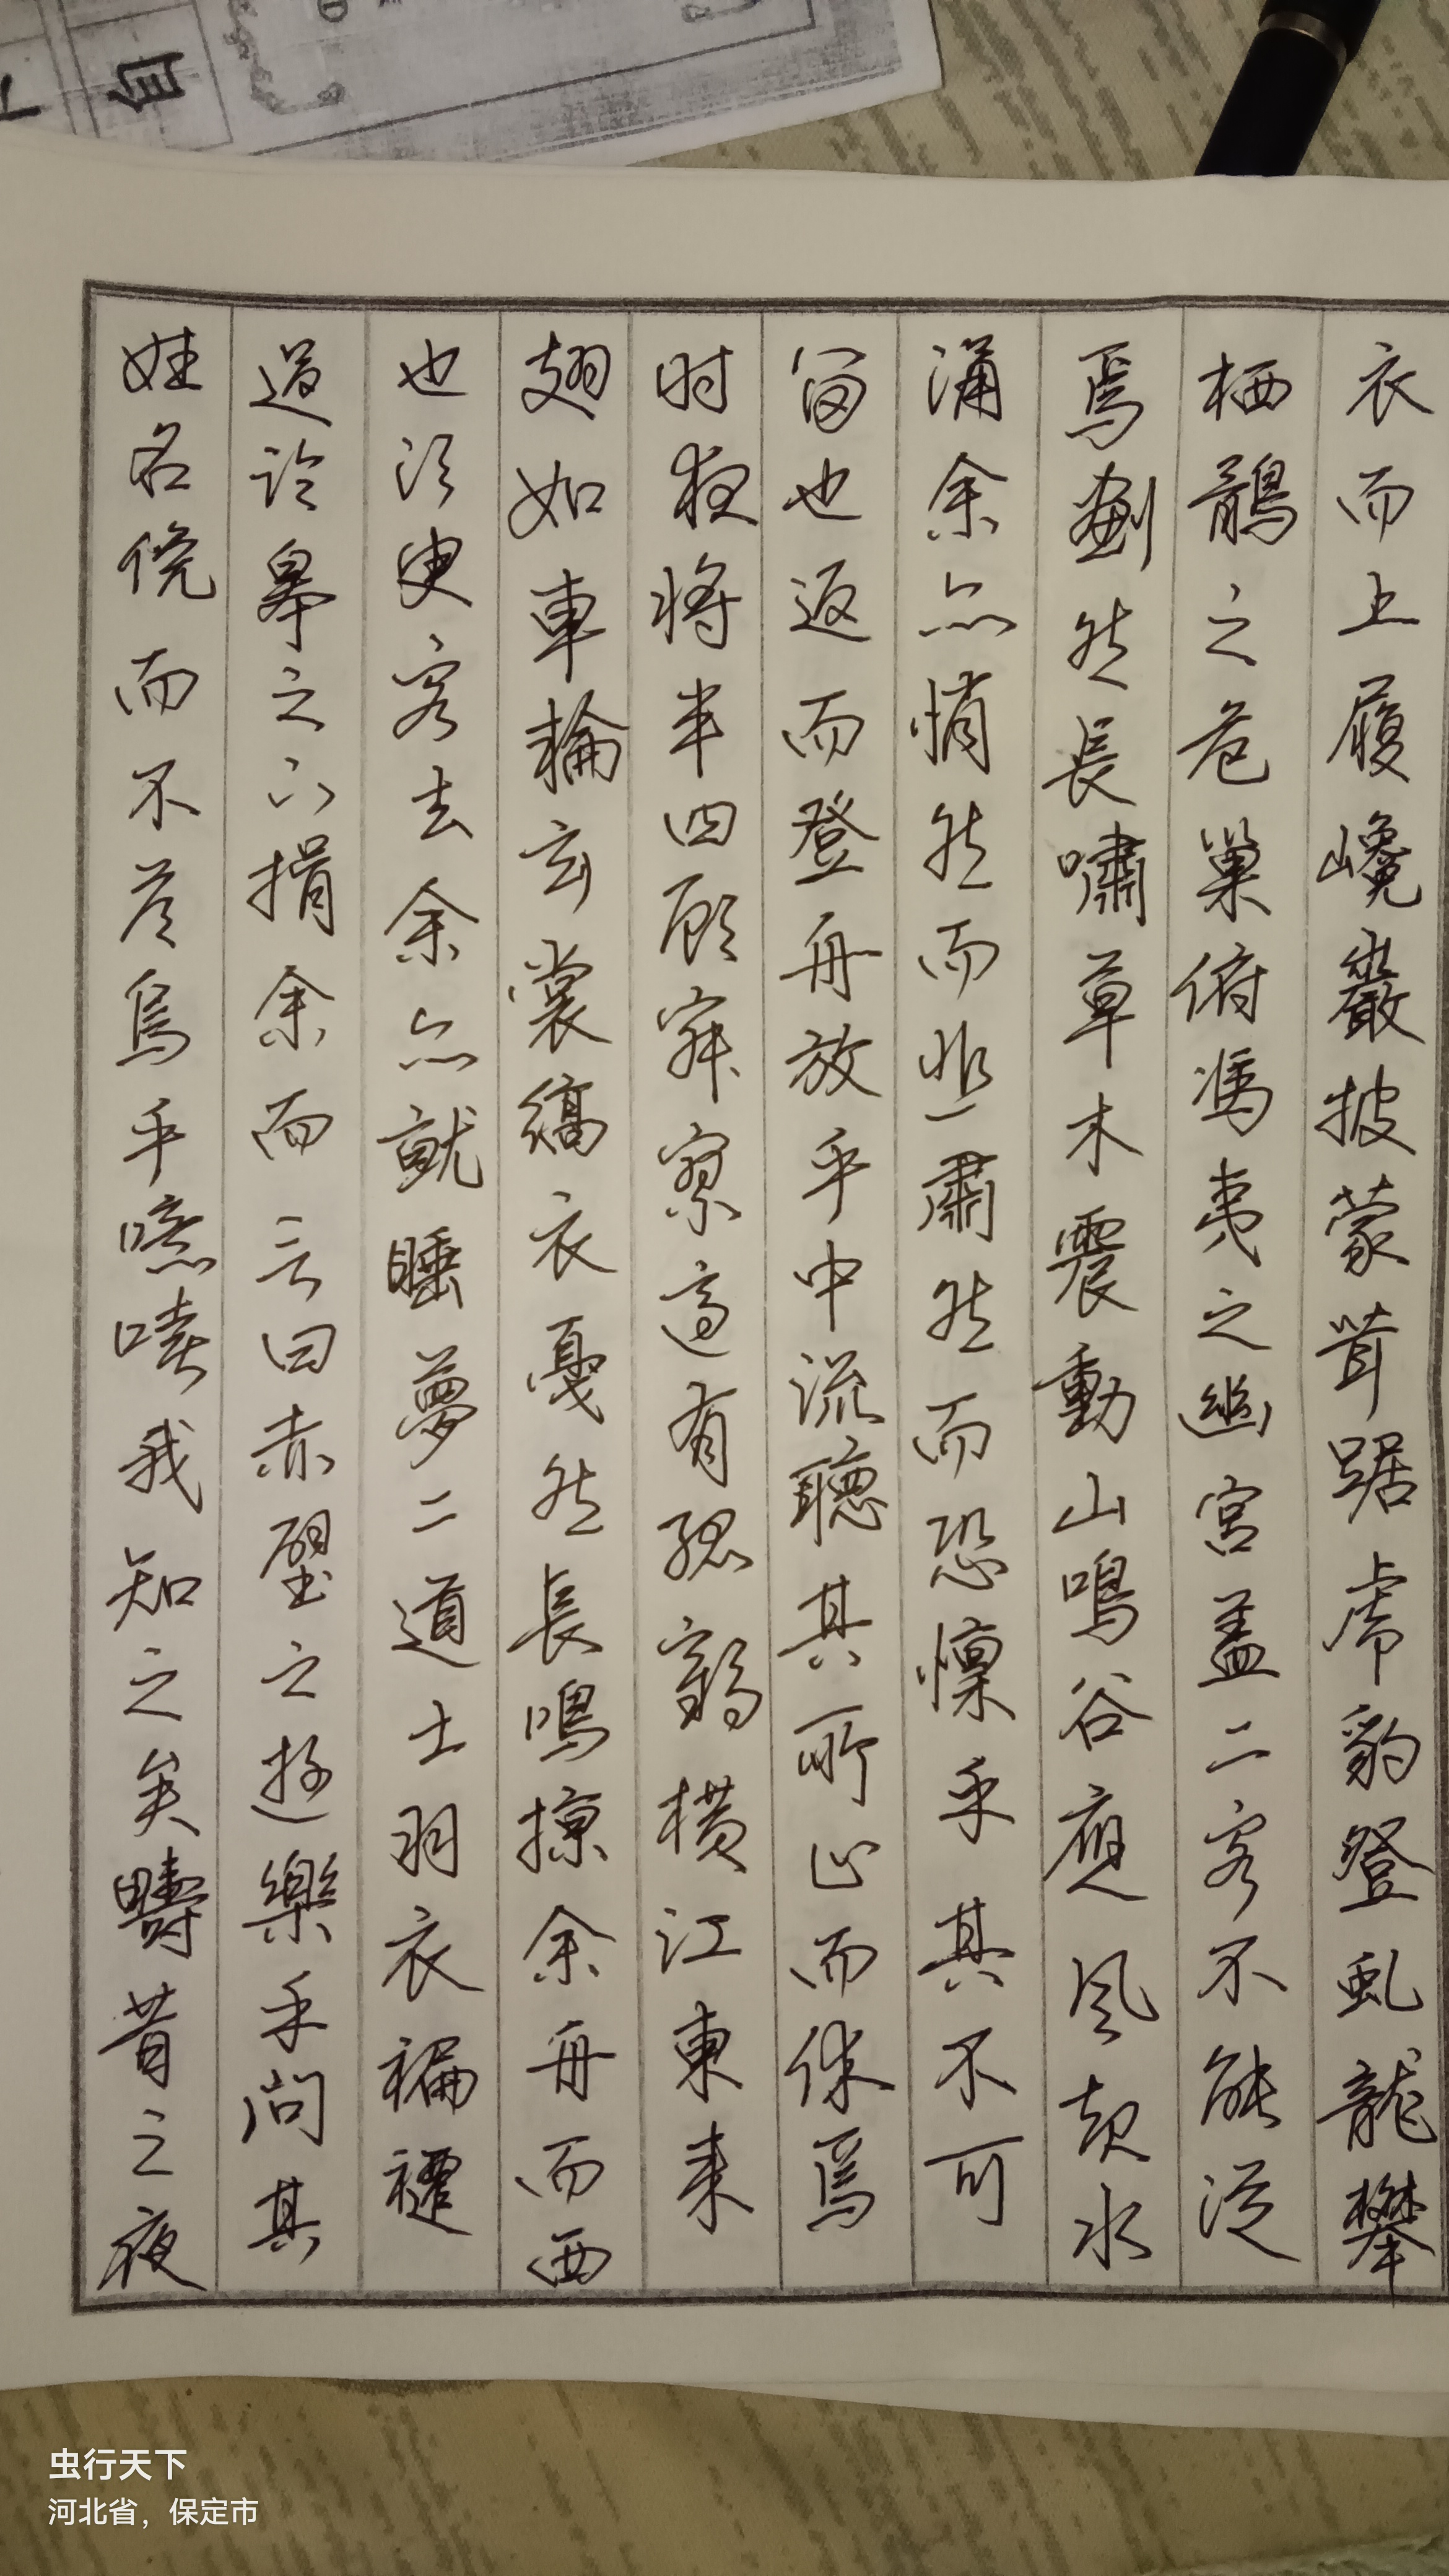 衣而上履巉巖披蒙茸踞虎豹登虬龍攀
栖鶻之危巢俯馮夷之幽宮蓋二客不能從
焉劃然長嘯草木震動山鳴谷應風起水
涌余亦悄然而悲肅然而恐懍乎其不可
留也返而登舟放乎中流聽其所止而休焉
时夜將半四顧寂寥適有孤鶴橫江東来
翅如車輪玄裳縞衣戛然長鳴掠余舟而西
也須臾客去余亦就睡夢二道士羽衣褊褼
過詣皋之下揖余而言曰赤壁之遊樂乎问其
姓名俛而不答烏乎噫嘻我知之矣疇昔之夜
自
虫行天下
河北省，保定市